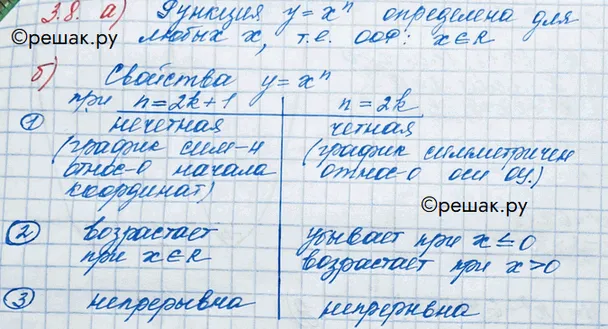 3.8. а) Функция y = xⁿ определена для
любых x, т.е. ООФ: x∈R
©решак.ру
б) Свойства y = xⁿ
при n = 2k+1 | n = 2k
① нечетная | четная
(график сим-н | (график симметричен
относ-о начала | относ-о оси OY.)
координат)
©решак.ру
② возрастает | убывает при x ≤ 0
при x∈R | возрастает при x > 0
③ непрерывна | непрерывна